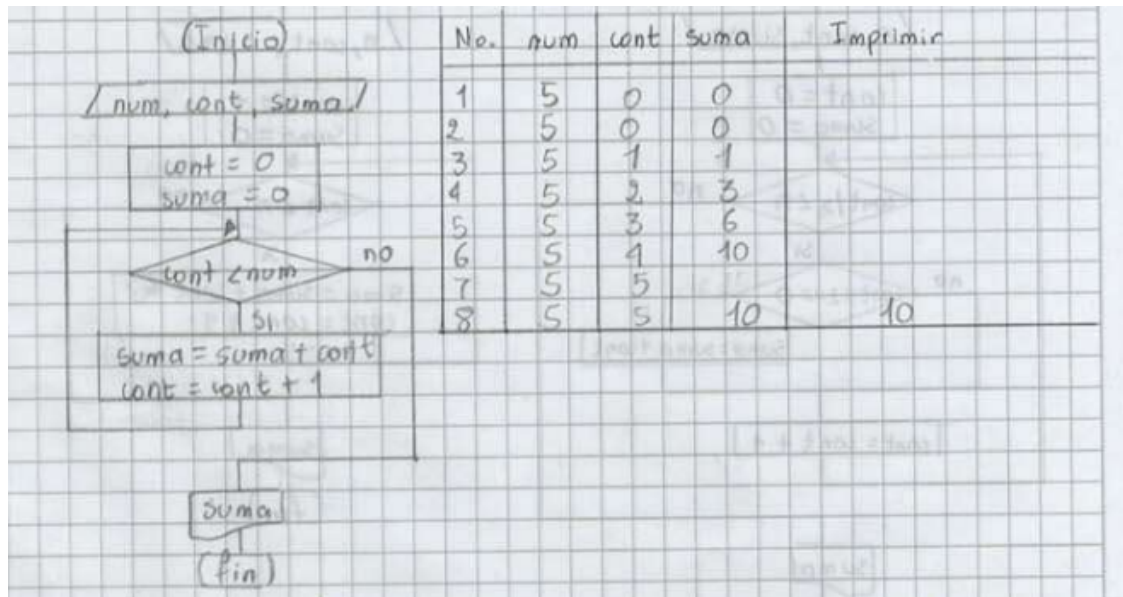 (Inicio)
/ num, cont, suma /
cont = 0
suma = 0
cont < num
no
Si
suma = suma + cont
cont = cont + 1
suma
(fin)
No. num cont suma Imprimir
1 5 0 0
2 5 0 0
3 5 1 1
4 5 2 3
5 5 3 6
6 5 4 10
7 5 5
8 5 5 10 10